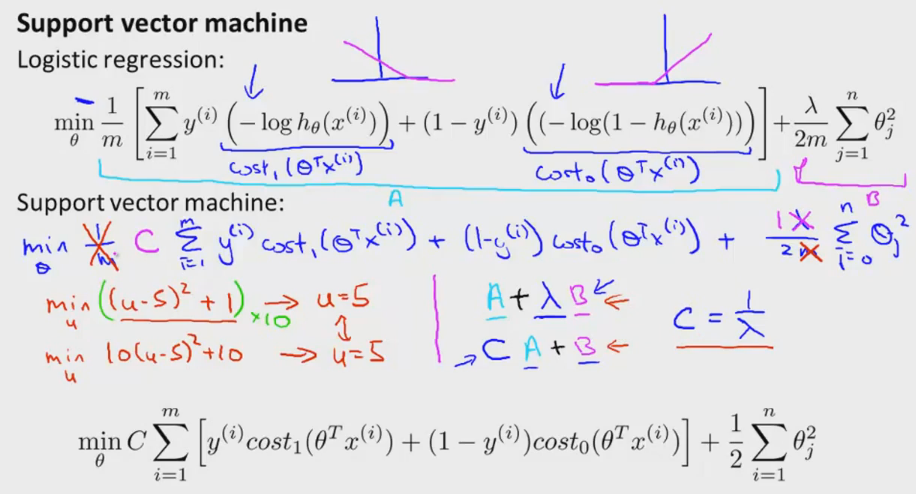 Support vector machine
Logistic regression:
min_θ 1/m [ ∑_{i=1}^{m} y^{(i)} (−log h_θ(x^{(i)})) + (1 − y^{(i)}) ((−log(1 − h_θ(x^{(i)}))) ] + λ/2m ∑_{j=1}^{n} θ_j^2
cost₁(θᵀx^{(i)}) cost₀(θᵀx^{(i)})
A B
Support vector machine:
min_θ 1/m C ∑_{i=1}^{m} y^{(i)} cost₁(θᵀx^{(i)}) + (1−y^{(i)}) cost₀(θᵀx^{(i)}) + 1 λ/2m ∑_{i=0}^{n} θ_j^2
min_u ((u−5)² + 1) ×10 → u=5 A + λ B ← C = 1/λ
min_u 10(u−5)²+10 → u=5 → C A + B ←
min_θ C ∑_{i=1}^{m} [ y^{(i)} cost_1(θ^T x^{(i)}) + (1 − y^{(i)}) cost_0(θ^T x^{(i)}) ] + 1/2 ∑_{i=1}^{n} θ_j^2